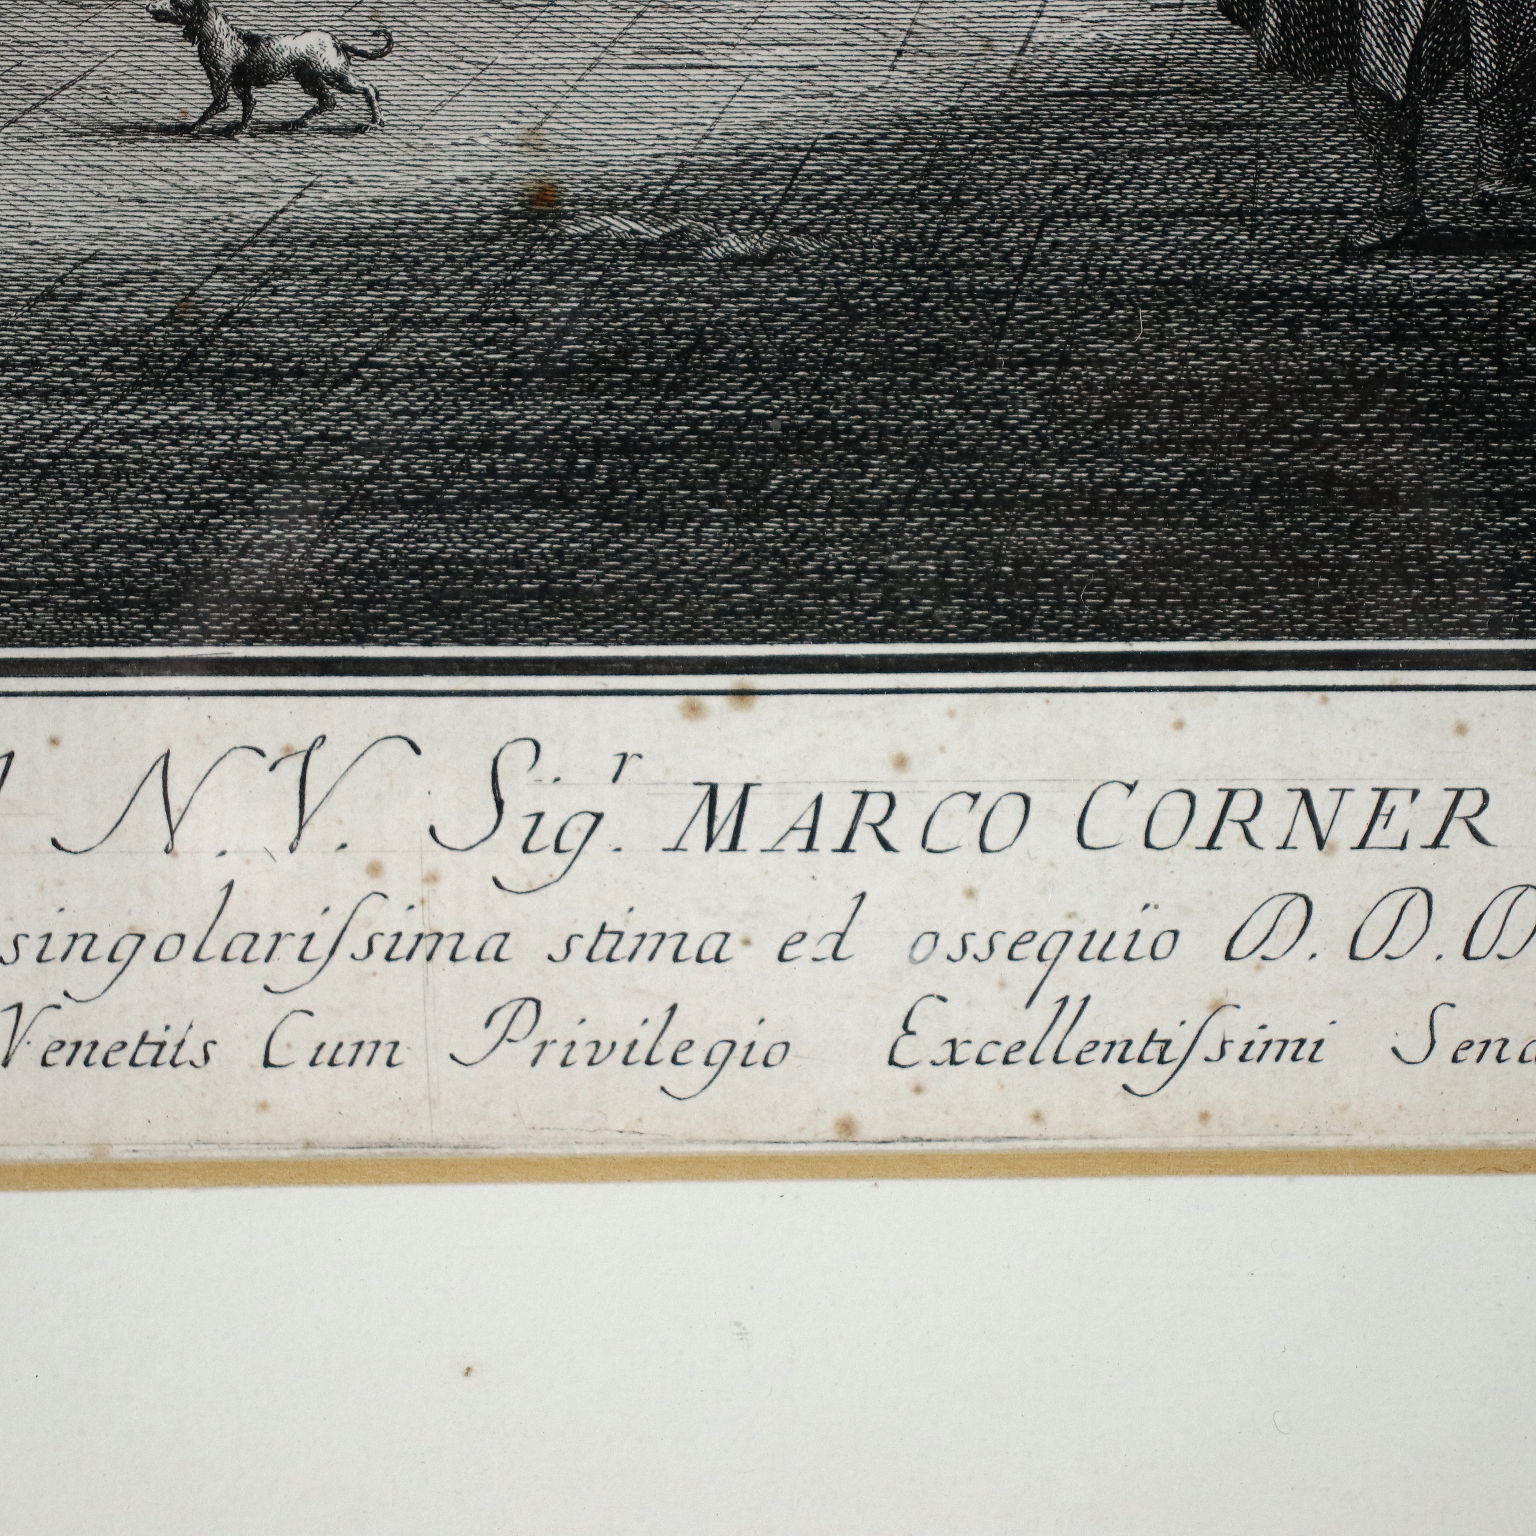 N. V. Sig.r MARCO CORNER
singolariſsima stima ed ossequïo D. D. D
Venetiis Cum Privilegio Excellentiſsimi Sena